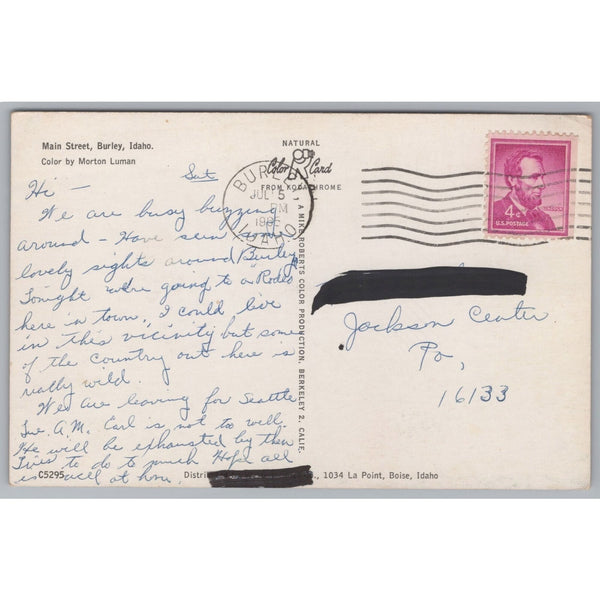 Main Street, Burley, Idaho.
Color by Morton Luman
Sat
Hi -
We are busy buzzing
around - Have seen some
lovely sights around Burley,
Tonight we're going to a Rodeo
here in town, I could live
in this vicinity but some
of the country out here is
really wild.
We are leaving for Seattle
A.M. Earl is not too well.
He will be exhausted by then
Tries to do to much Hope all
is well at home.
C5295
NATURAL
Color Card
FROM KODACHROME
BURLEY
JUL 5
PM
IDAHO
A MIKE ROBERTS COLOR PRODUCTION, BERKELEY 2, CALIF.
4¢
U.S. POSTAGE
Jackson Center
Pa,
16133
1034 La Point, Boise, Idaho